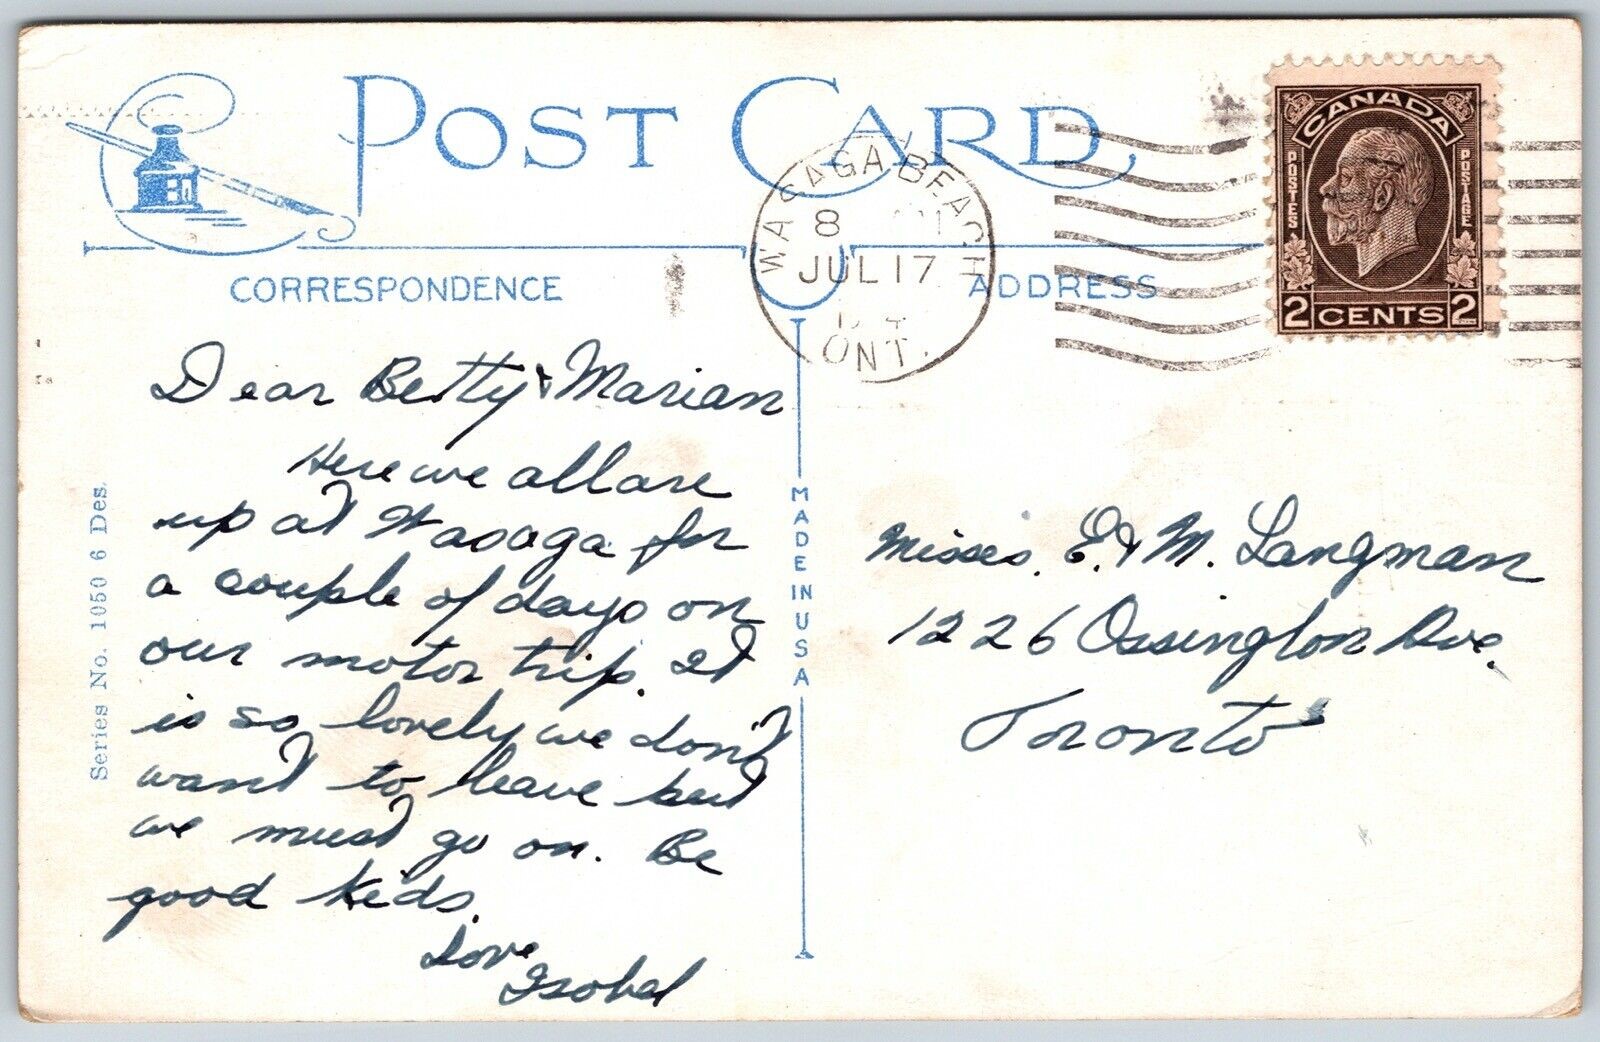 POST CARD
CORRESPONDENCE
ADDRESS
WASAGA BEACH
8
JUL 17
ONT.
CANADA
POSTES
POSTAGE
2 CENTS 2
Dear Betty & Marian
Here we all are
up at Wasaga for
a couple of days on
our motor trip. It
is so lovely we don't
want to leave but
we must go on. Be
good kids.
Love
Isobel
Misses. E. & M. Langman
1226 Ossington Ave.
Toronto
MADE IN USA
Series No. 1050 6 Des.